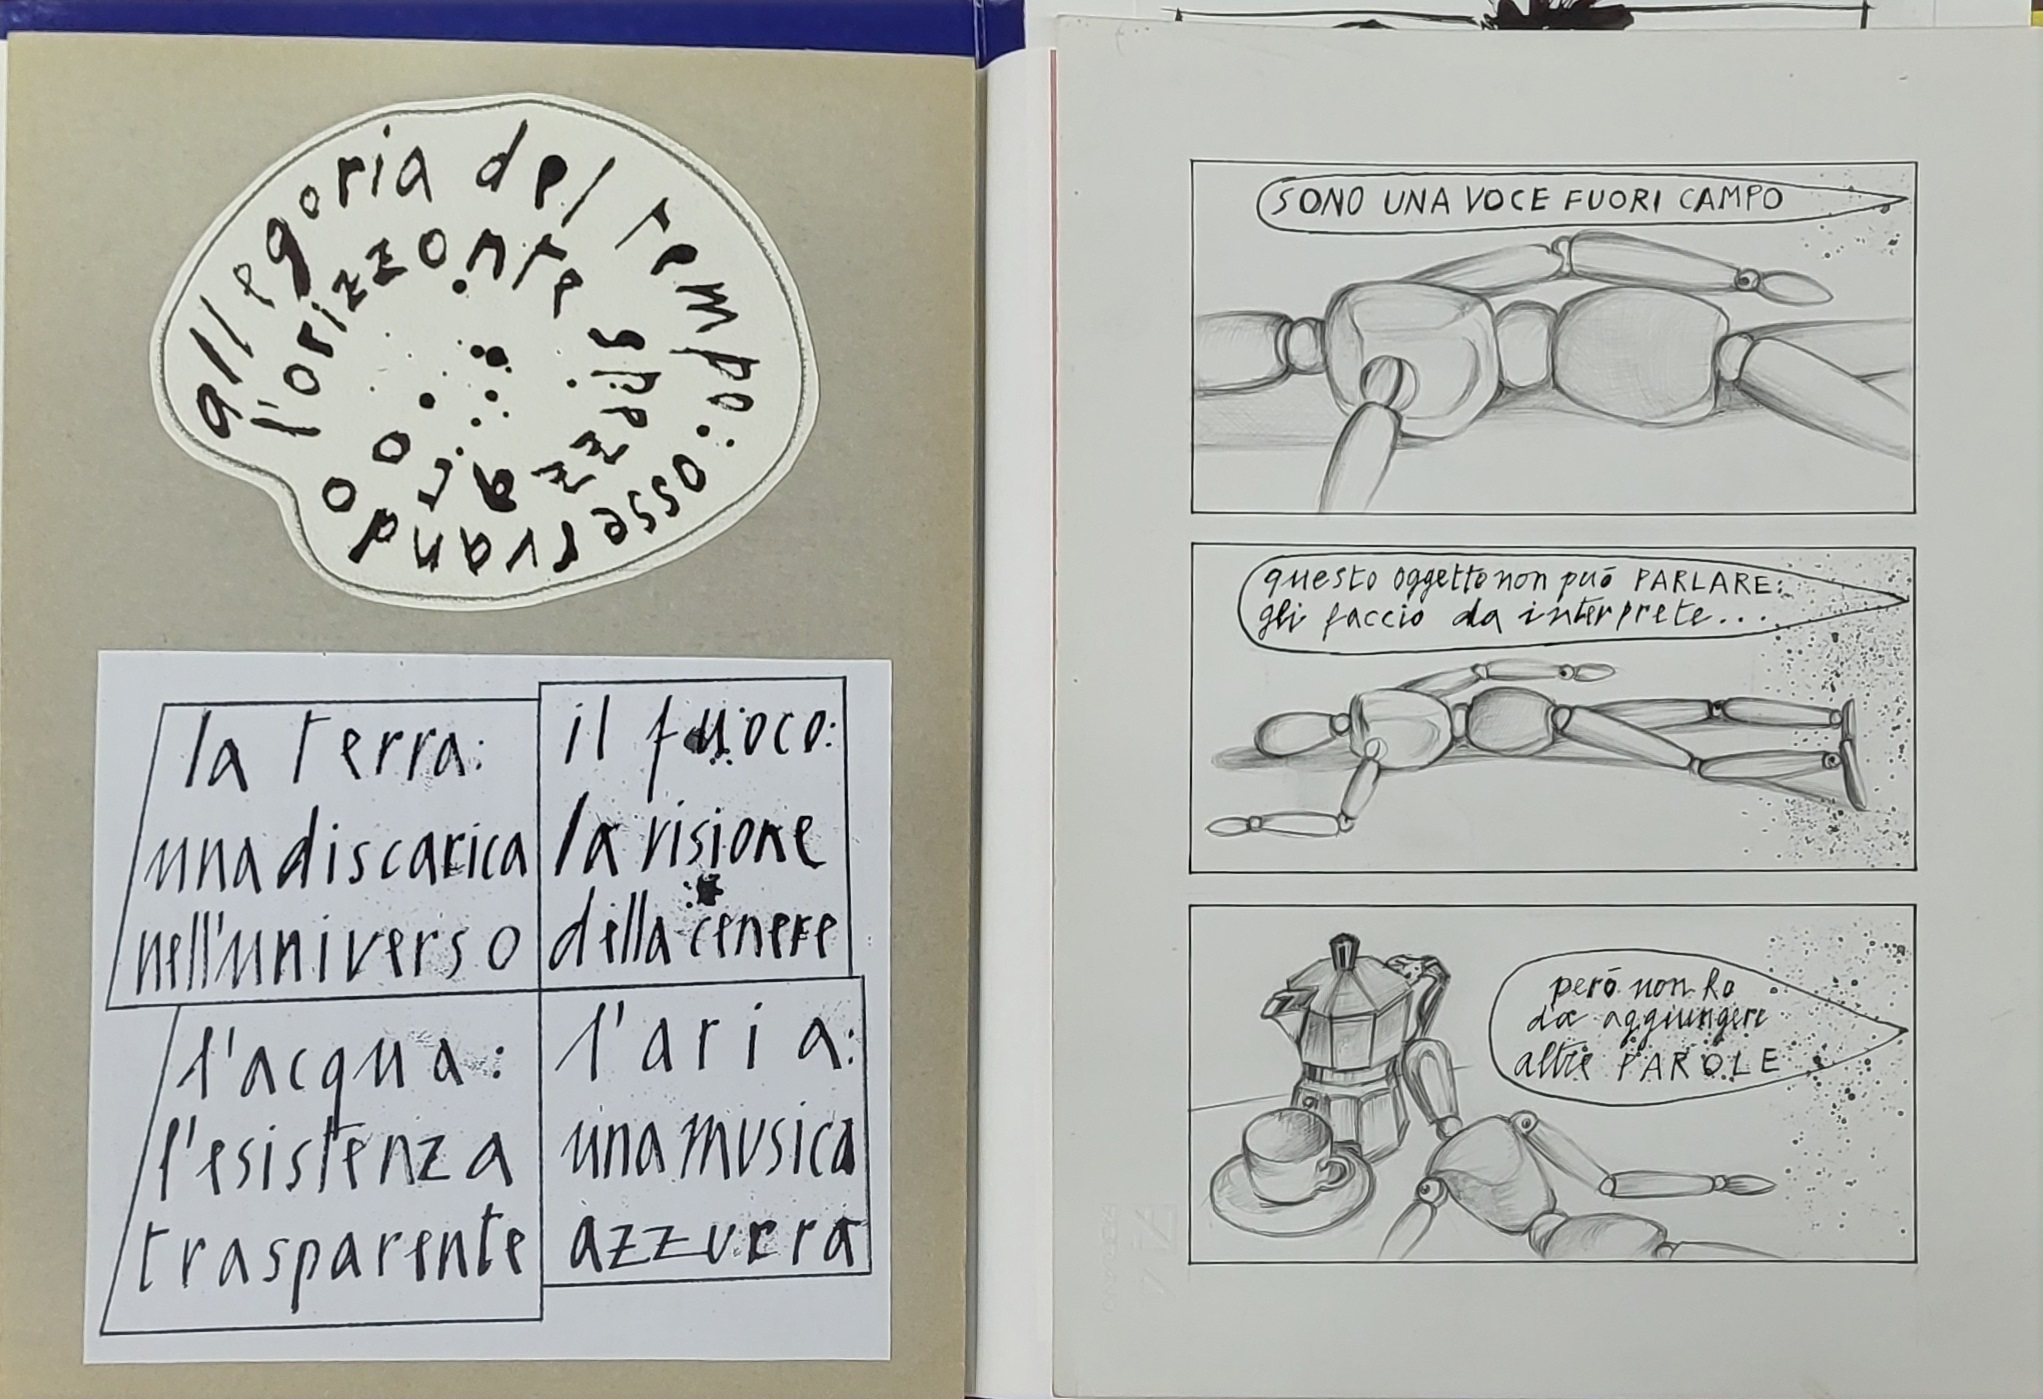 allegoria del tempo: osservando
l'orizzonte spezzato
la terra:
una discarica
nell'universo
il fuoco:
la visione
della cenere
l'acqua:
l'esistenza
trasparente
l'aria:
una musica
azzurra
SONO UNA VOCE FUORI CAMPO
questo oggetto non puó PARLARE:
gli faccio da interprete....
peró non ho
da aggiungere
altre PAROLE